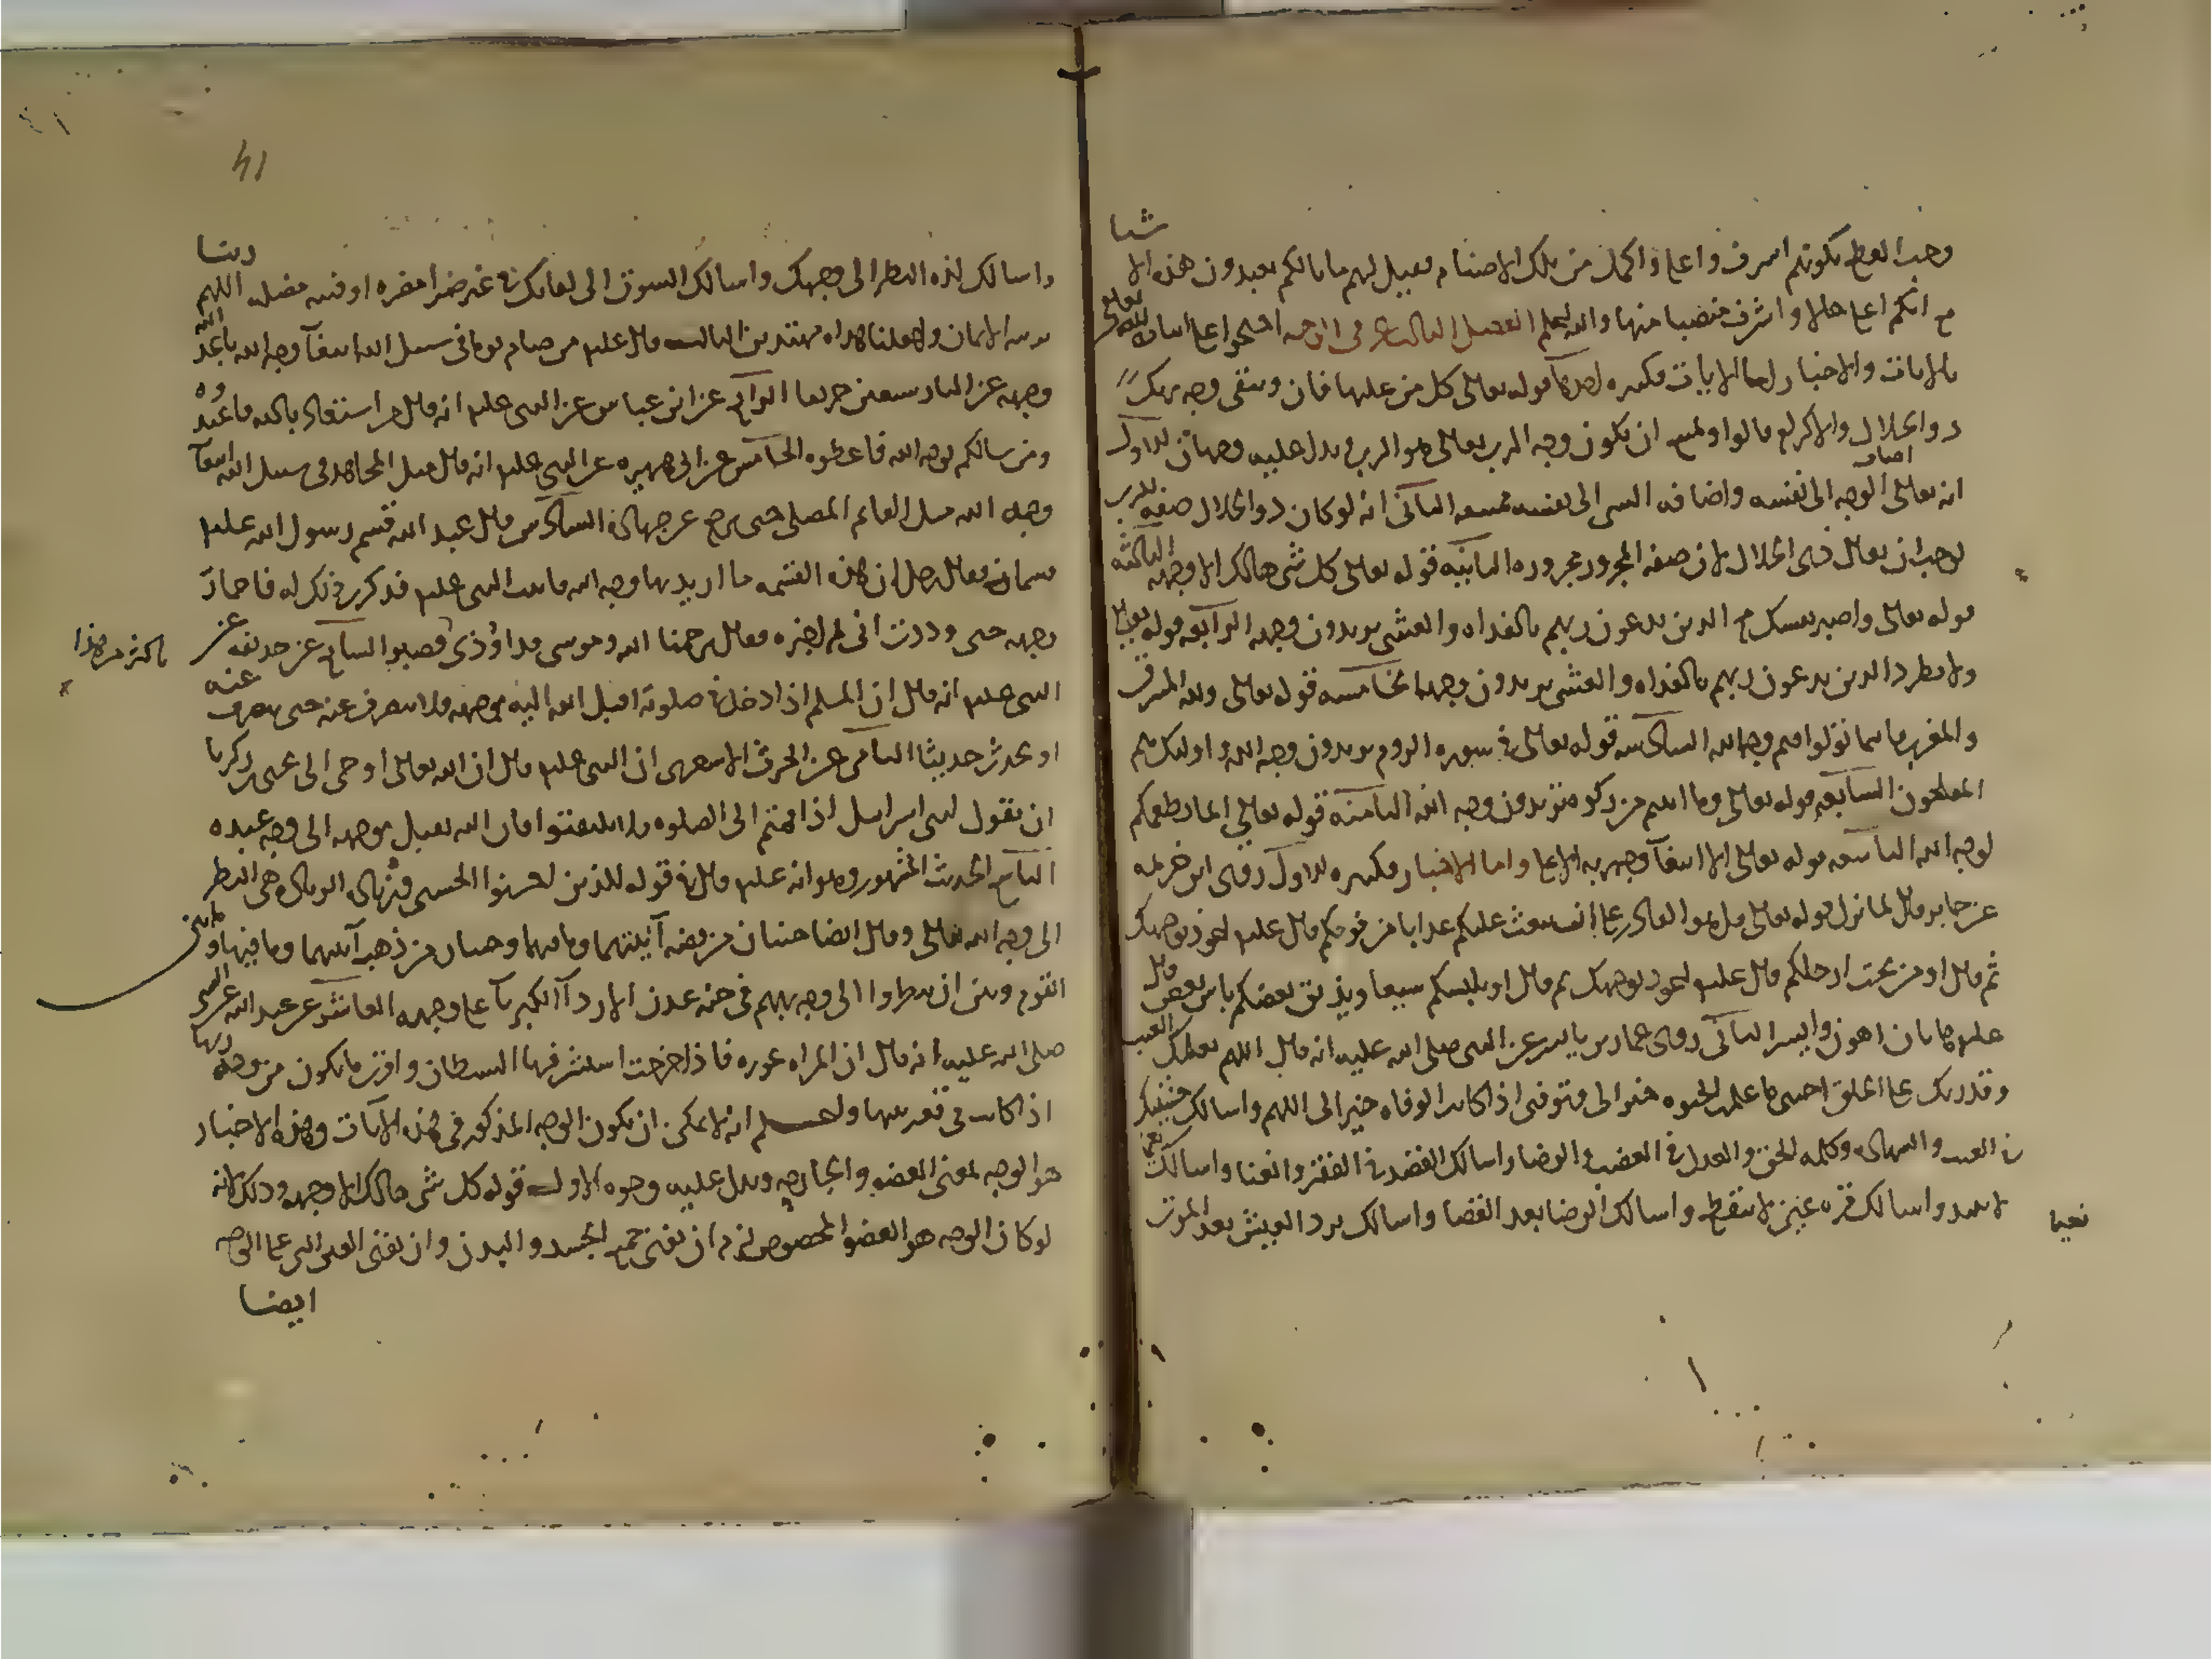 وجب القطع بكونهم اشرف واعلى واكمل من تلك الاصنام فقيل لهم ما بالكم تعبدون هذه الاشيا
مع انكم اعلى حالا واشرف منصبا منها والله اعلم الفصل الثالث في الوجه احتجوا على اثباته لله تعالى
بالايات والاخبار اما الايات فكثيره احدها قوله تعالى كل من عليها فان ويبقى وجه ربك
ذو الجلال والاكرام قالوا وامتنع ان يكون وجه الرب تعالى هو الرب ويدل عليه وجهان الاول
انه تعالى اضاف الوجه الى نفسه واضافه الشى الى نفسه ممتنعه الثانى انه لو كان ذو الجلال صفه للرب
لوجب ان يقال ذى الجلال لان صفه المجرور مجروره الثانيه قوله تعالى كل شى هالك الا وجهه الثالثه
قوله تعالى واصبر نفسك مع الذين يدعون ربهم بالغداه والعشى يريدون وجهه الرابعه قوله تعالى
ولا تطرد الذين يدعون ربهم بالغداه والعشى يريدون وجهه الخامسه قوله تعالى ولله المشرق
والمغرب فاينما تولوا فثم وجه الله السادسه قوله تعالى في سوره الروم يريدون وجه الله واولئك هم
المفلحون السابعه قوله تعالى وما اتيتم من زكوه تريدون وجه الله الثامنه قوله تعالى انما نطعمكم
لوجه الله التاسعه قوله تعالى الا ابتغآ وجه ربه الاعلى واما الاخبار فكثيره الاول روى ابن خزيمه
عن جابر قال لما نزل قوله تعالى قل هو القادر على ان يبعث عليكم عذابا من فوقكم قال عليه اعوذ بوجهك
ثم قال او من تحت ارجلكم قال عليه اعوذ بوجهك ثم قال او يلبسكم شيعا ويذيق بعضكم باس بعض قال
عليه هاتان اهون وايسر الثانى روى عمار بن ياسر عن النبى صلى الله عليه انه قال اللهم بعلمك الغيب
وقدرتك على الخلق احينى ما علمت الحيوه خيرا لى وتوفنى اذا كانت الوفاه خيرا لى اللهم واسالك خشيتك
فى الغيب والشهاده وكلمه الحق والعدل في الغضب والرضا واسالك القصد في الفقر والغنا واسالك نعيما
لا يبيد واسالك قره عين لا تنقطع واسالك الرضا بعد القضا واسالك برد العيش بعد الموت
نعيما
41
واسالك لذه النظر الى وجهك واسالك الشوق الى لقايك في غير ضرا مضره او فتنه مضله اللهم زينا
بزينه الايمان واجعلنا هداه مهتدين الثالث قال عليه من صام يوما في سبيل الله ابتغآ وجه الله باعد الله
وجهه عن النار سبعين خريفا الرابع عن ابن عباس عن النبى عليه انه قال من استعاذ بالله فاعيذوه
ومن سالكم بوجه الله فاعطوه الخامس عن ابى هريره عن النبى عليه انه قال مثل المجاهد فى سبيل الله ابتغآ
وجه الله مثل القايم المصلى حتى يرجع عن جهاده السادس قال عبد الله قسم رسول الله عليه
فقال رجل ان هذه القسمه ما اريد بها وجه الله فاتيت النبى عليه فذكرت ذلك له فاحمار
وجهه حتى وددت انى لم اخبره فقال يرحمنا الله وموسى قد اوذى فصبر السابع عن حذيفه عن
باكثر من هذا
النبى عليه انه قال ان المسلم اذا دخل في صلوته اقبل الله اليه بوجهه فلا ينصرف عنه حتى ينصرف عنه
او يحدث حديثا الثامن عن الحرث الاشعرى ان النبى عليه قال ان الله تعالى اوحى الى يحيى بن زكريا
ان يقول لبنى اسرايل اذا قمتم الى الصلوه فلا تلتفتوا فان الله يقبل بوجهه الى وجه عبده
التاسع الحديث المشهور وهو انه عليه قال في قوله للذين احسنوا الحسنى وزياده الزياده هى النظر
الى وجه الله تعالى وقال ايضا جنتان من فضه آنيتهما وما فيهما وجنتان من ذهب آنيتهما وما فيهما وما بين
القوم وبين ان ينظروا الى وجه ربهم فى جنه عدن الا ردآ الكبريآ على وجهه العاشر عن عبد الله عن النبى
صلى الله عليه انه قال ان المراه عوره فاذا خرجت استشرفها الشيطان واقرب ما تكون من وجه ربها
اذا كانت في قعر بيتها واعلم انه لا يمكن ان يكون الوجه المذكور فى هذه الايات وهذه الاخبار
هو الوجه بمعنى العضو والجارحه ويدل عليه وجوه الاول قوله كل شى هالك الا وجهه وذلك لانه
لو كان الوجه هو العضو المخصوص لزم ان يفنى جميع الجسد والبدن وان تفنى العين التى على الوجه
ايضا